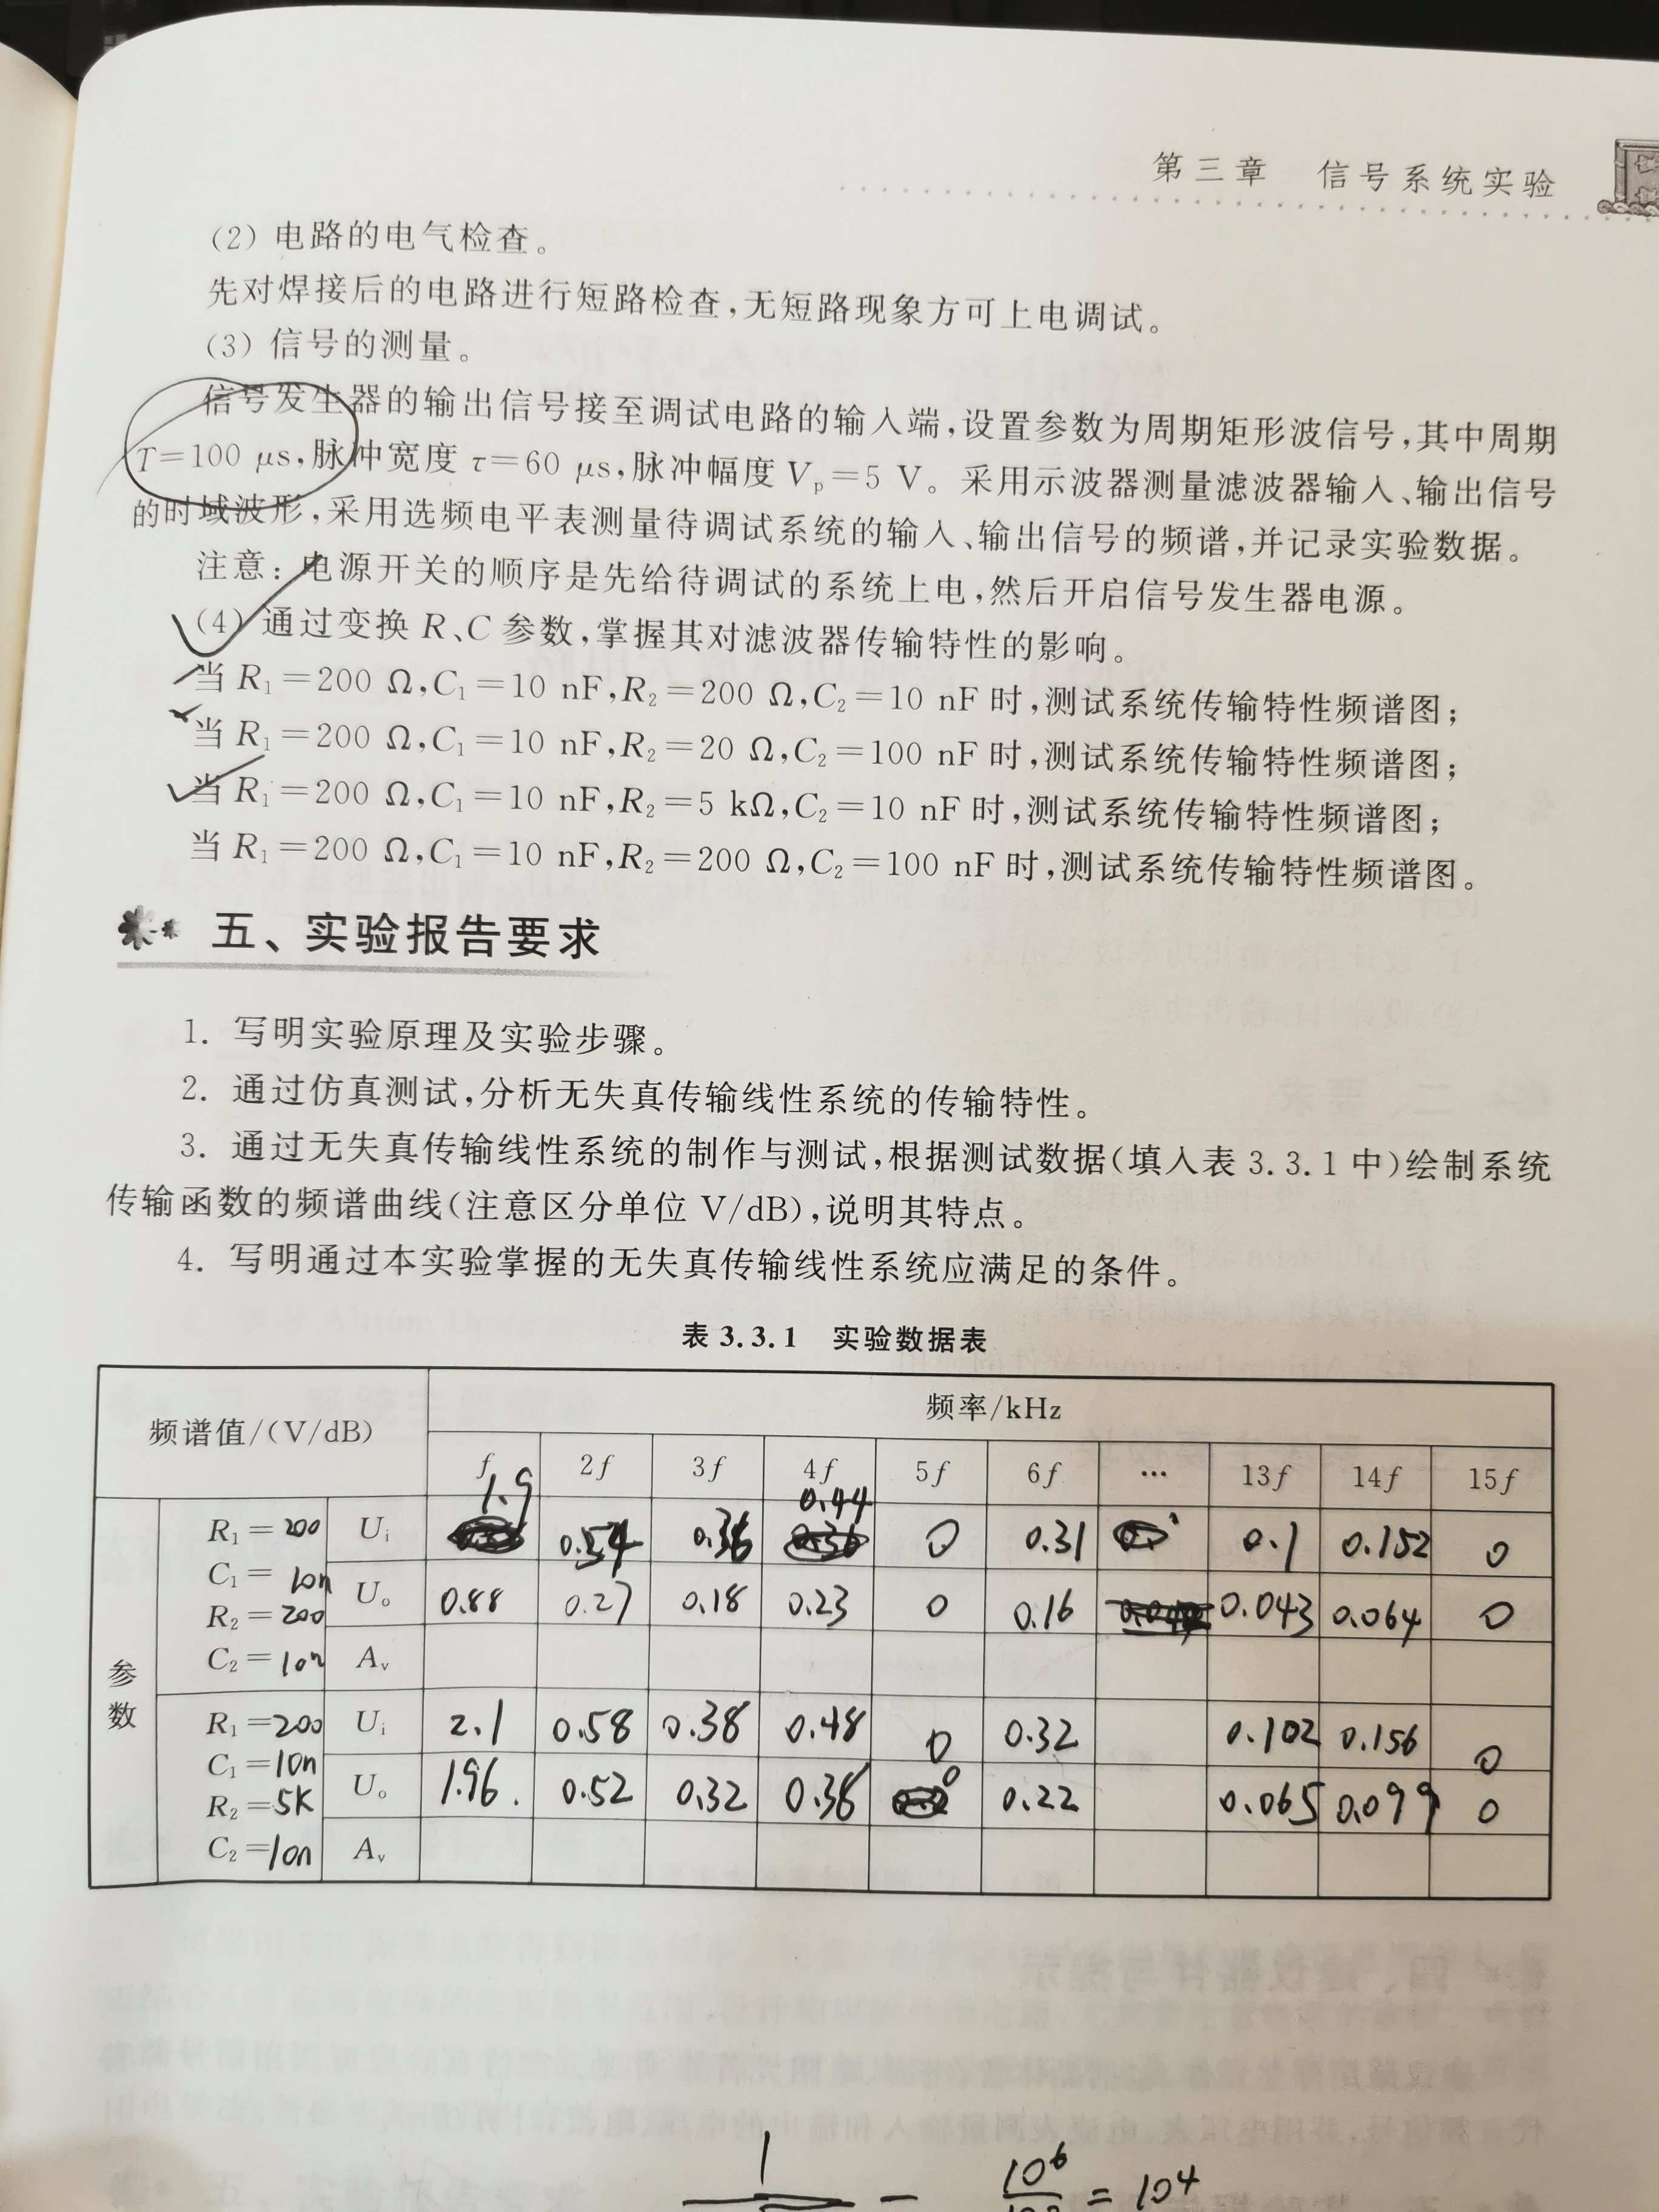 第三章 信号系统实验
(2) 电路的电气检查。
先对焊接后的电路进行短路检查,无短路现象方可上电调试。
(3) 信号的测量。
信号发生器的输出信号接至调试电路的输入端,设置参数为周期矩形波信号,其中周期
T=100 μs,脉冲宽度 τ=60 μs,脉冲幅度 Vp=5 V。采用示波器测量滤波器输入、输出信号
的时域波形,采用选频电平表测量待调试系统的输入、输出信号的频谱,并记录实验数据。
注意:电源开关的顺序是先给待调试的系统上电,然后开启信号发生器电源。
(4) 通过变换 R、C 参数,掌握其对滤波器传输特性的影响。
当 R₁=200 Ω,C₁=10 nF,R₂=200 Ω,C₂=10 nF 时,测试系统传输特性频谱图;
当 R₁=200 Ω,C₁=10 nF,R₂=20 Ω,C₂=100 nF 时,测试系统传输特性频谱图;
当 R₁=200 Ω,C₁=10 nF,R₂=5 kΩ,C₂=10 nF 时,测试系统传输特性频谱图;
当 R₁=200 Ω,C₁=10 nF,R₂=200 Ω,C₂=100 nF 时,测试系统传输特性频谱图。
五、实验报告要求
1. 写明实验原理及实验步骤。
2. 通过仿真测试,分析无失真传输线性系统的传输特性。
3. 通过无失真传输线性系统的制作与测试,根据测试数据(填入表 3.3.1 中)绘制系统
传输函数的频谱曲线(注意区分单位 V/dB),说明其特点。
4. 写明通过本实验掌握的无失真传输线性系统应满足的条件。
表 3.3.1 实验数据表
频谱值/(V/dB) 频率/kHz
f 2f 3f 4f 5f 6f … 13f 14f 15f
参数
R₁=200 C₁=10n R₂=200 C₂=10n
Uᵢ 1.9 0.54 0.36 0.44 0 0.31 0.1 0.152 0
Uₒ 0.88 0.27 0.18 0.23 0 0.16 0.043 0.064 0
Aᵥ
R₁=200 C₁=10n R₂=5K C₂=10n
Uᵢ 2.1 0.58 0.38 0.48 0 0.32 0.102 0.156 0
Uₒ 1.96 0.52 0.32 0.36 0 0.22 0.065 0.099 0
Aᵥ
1 10⁶ = 10⁴